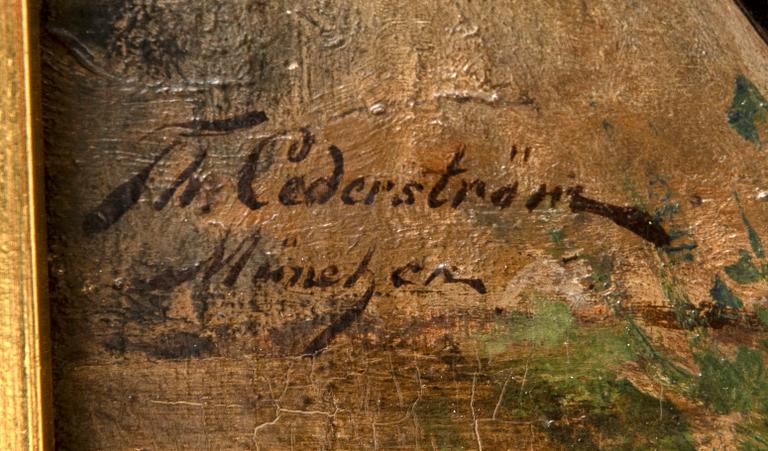 Th. Cederström
München